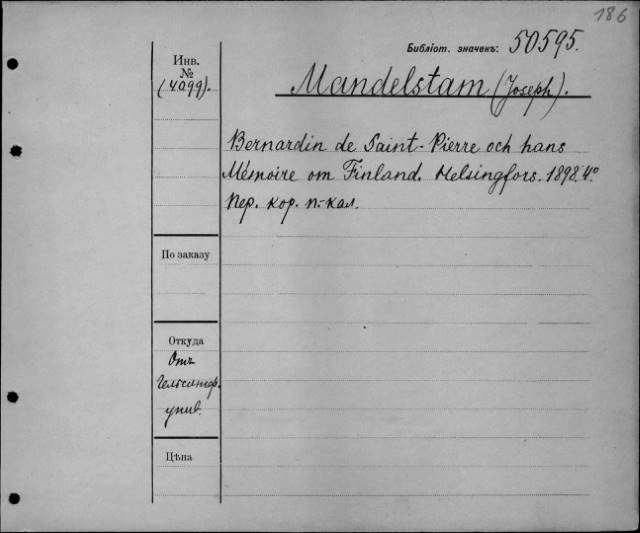 186
Библіот. значекъ: 50595.
Инв.
№
(4099).
Mandelstam (Joseph).
Bernardin de Saint-Pierre och hans
Mémoire om Finland. Helsingfors. 1898. 4°
Пер. кор. п.-кал.
По заказу
Откуда
Отъ
Гельсингф.
унив.
Цѣна